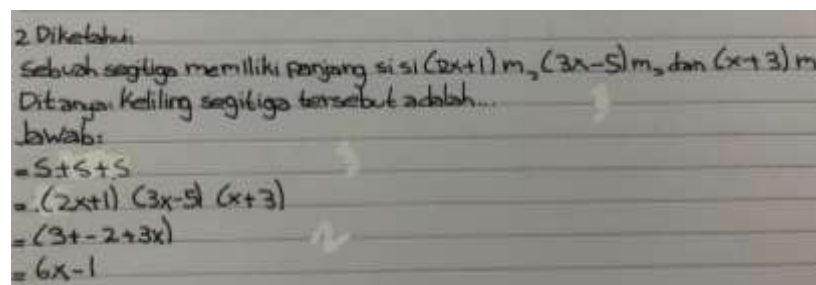 2 Diketahui:
Sebuah segitiga memiliki panjang sisi (2x+1) m, (3x-5) m, dan (x+3) m
Ditanya: Keliling segitiga tersebut adalah...
Jawab:
= S+S+S
= (2x+1) (3x-5) (x+3)
= (3+-2+3x)
= 6x-1